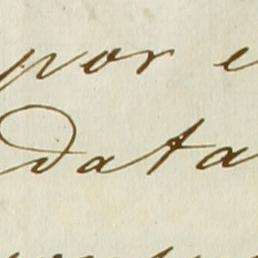 por e
data